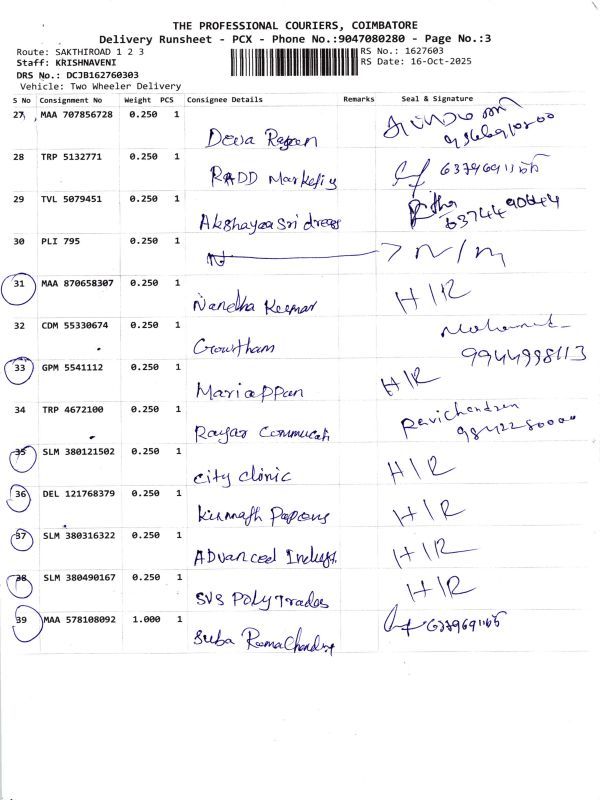 THE PROFESSIONAL COURIERS, COIMBATORE
Delivery Runsheet - PCX - Phone No.:9047080280 - Page No.:3
Route: SAKTHIROAD 1 2 3
RS No.: 1627603
Staff: KRISHNAVENI
RS Date: 16-Oct-2025
DRS No.: DCJB162760303
Vehicle: Two Wheeler Delivery
S No Consignment No Weight PCS Consignee Details Remarks Seal & Signature
27 MAA 707856728 0.250 1
Deva
28 TRP 5132771 0.250 1
RADD Marketing
29 TVL 5079451 0.250 1
Akshayaa Sri dresses
30 PLI 795 0.250 1 N/M
31 MAA 870658307 0.250 1 H/R
Nandha Kumar
32 CDM 55330674 0.250 1
Gowtham 9944998113
33 GPM 5541112 0.250 1 H/R
Mariappan
34 TRP 4672100 0.250 1 Ravichandran
35 SLM 380121502 0.250 1 H/R
City Clinic
36 DEL 121768379 0.250 1 H/R
37 SLM 380316322 0.250 1 H/R
Advanced
38 SLM 380490167 0.250 1 H/R
SVS Poly Trades
39 MAA 578108092 1.000 1
Suba